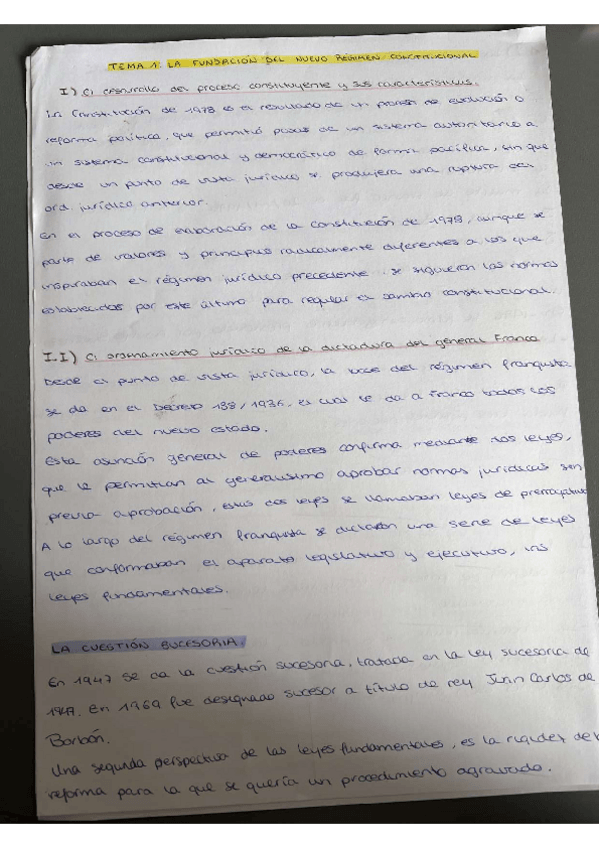 TEMA 1. LA FUNDACIÓN DEL NUEVO RÉGIMEN CONSTITUCIONAL
I) El desarrollo del proceso constituyente y sus características.
La Constitución de 1978 es el resultado de un proceso de evolución o
reforma política, que permitió pasar de un sistema autoritario a
un sistema constitucional y democrático de forma pacífica, sin que
desde un punto de vista jurídico se produjera una ruptura del
ord. jurídico anterior.
En el proceso de elaboración de la Constitución de 1978, aunque se
parte de valores y principios radicalmente diferentes a los que
inspiraban el régimen jurídico precedente se siguieron las normas
establecidas por este último para regular el cambio constitucional.
I.I) El ordenamiento jurídico de la dictadura del general Franco
Desde el punto de vista jurídico, la base del régimen franquista
se da en el Decreto 138/1936, el cual le da a Franco todos los
poderes del nuevo estado.
Esta asunción general de poderes confirma mediante dos leyes,
que le permitían al generalísimo aprobar normas jurídicas sin
previa aprobación, estas dos leyes se llamaban leyes de prerrogativa
A lo largo del régimen franquista se dictaron una serie de leyes
que conformaban el aparato legislativo y ejecutivo, las
leyes fundamentales.
LA CUESTIÓN SUCESORIA.
En 1947 se da la cuestión sucesoria, tratada en la ley sucesoria de
1947. En 1969 fue designado sucesor a título de rey Juan Carlos de
Borbón.
Una segunda perspectiva de las leyes fundamentales, es la rigidez de
reforma para la que se quería un procedimiento agravado.